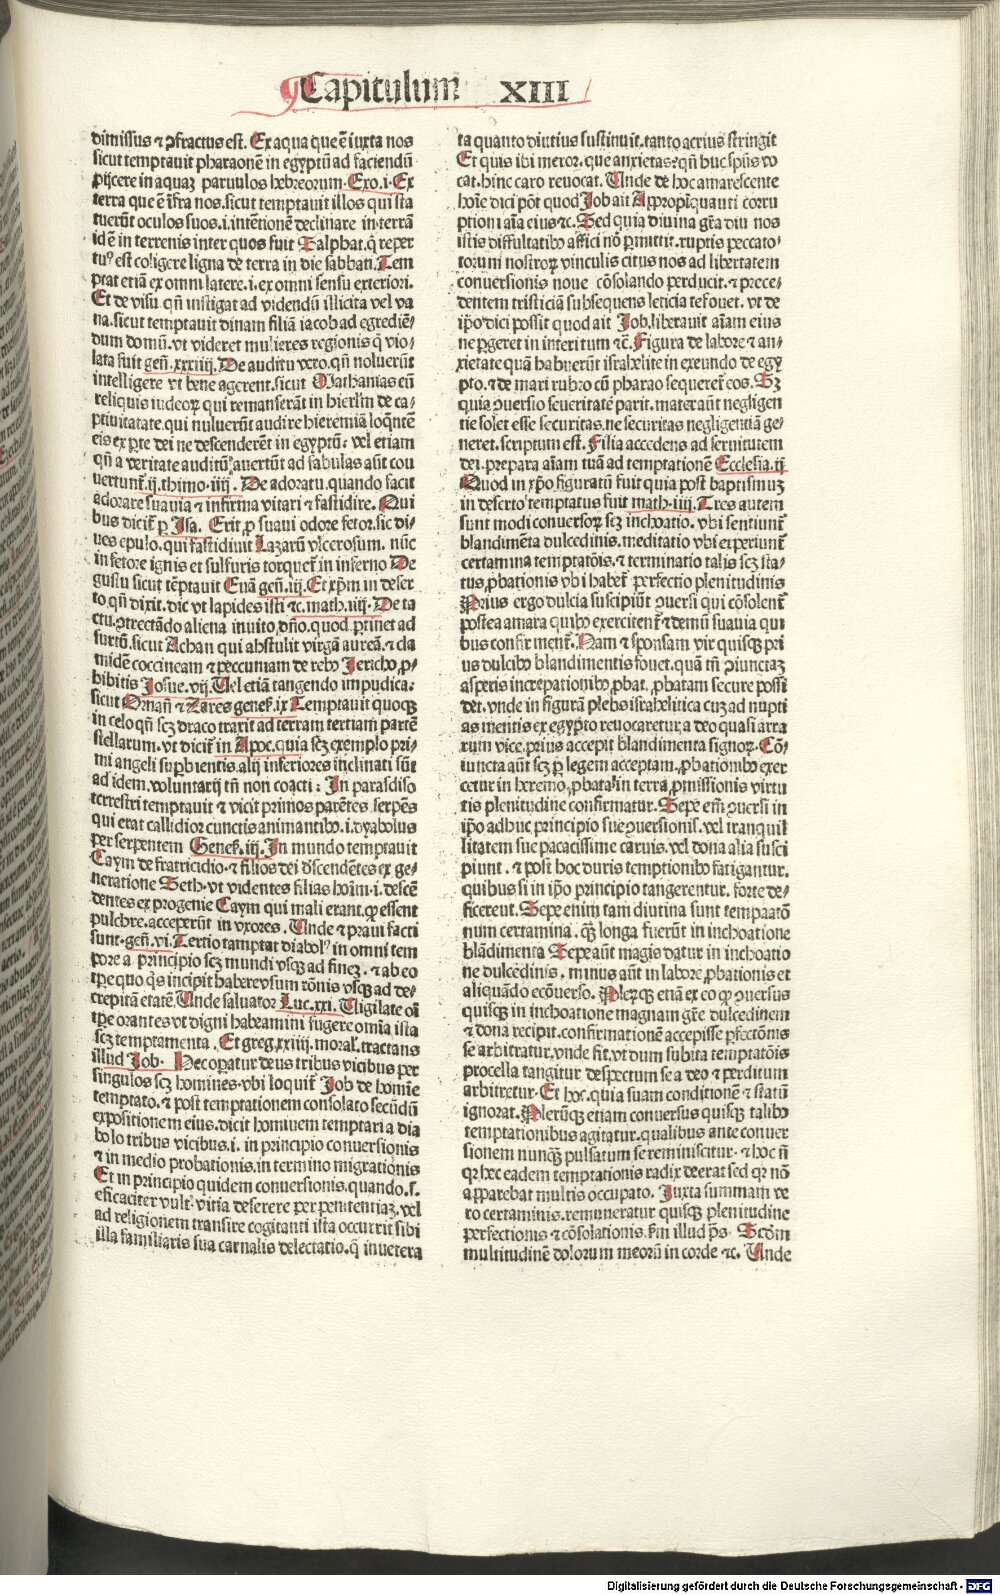 Capitulum XIII
dimissus ⁊ ꝯfractus est. Ex aqua que ē iuxta nos
sicut temptauit pharaonē in egyptū ad faciendū
ꝓijcere in aquaꝫ paruulos hebreorum. Exo. i. Ex
terra que ē ifra nos. sicut temptauit illos qui sta
tuerūt oculos suos .i. intētionē declinare in terrā
id ē in terrenis inter quos fuit Salphat. q̄ reper
tuꝰ est coligere ligna de terra in die sabbati. Tem
ptat etiā ex omni latere .i. ex omni sensu exteriori.
Et de visu. qn̄ instigat ad videndū illicita vel va
na. sicut temptauit dinam filiā iacob ad egrediē⸗
dum domū. vt videret mulieres regionis q̄ vio⸗
lata fuit gen̄. xxxiiij. De auditu vero. qn̄ noluerūt
intelligere vt bene agerent. sicut Mathanias cū
reliquis iudeoꝝ qui remanserāt in hierlm̄ de ca⸗
ptiuitatate. qui nuluerūt audire hieremiā loq̄ntē
eis ex ꝑte dei ne descenderēt in egyptū: vel etiam
qn̄ a veritate auditū auertūt ad fabulas aūt cou
vertunt̄. ij. thimo. iiij. De adoratu. quando facit
adorare suauia ⁊ infirma vitari ⁊ fastidire. Qui
bus dicit̄ ꝑ Isa. Erit ꝓ suaui odore fetor. sic di⸗
ues epulo. qui fastidiuit Lazarū vlcerosum. nūc
in fetore ignis et sulfuris torquet̄ in inferno De
gustu sicut tēptauit Euā gen̄. iij. Et xp̄m in deser
to. qn̄ dixit. dic vt lapides isti ⁊c. math. iiij. De ta
ctu. ꝯtrectādo aliena inuito dn̄o. quod ꝑtinet ad
furtū. sicut Achan qui abstulit virgā aureā. ⁊ cla
midē coccineam ⁊ peccuniam de rebꝰ Jericho ꝓ⸗
hibitis Josue. vij. Uel etiā tangendo impudica:
sicut Onan̄ ⁊ Zares geneẜ. ix Temptauit quoqꝫ
in celo qn̄ scꝫ draco traxit ad terram tertiam partē
stellarum. vt dicit̄ in Apoc. quia scꝫ exemplo pri⸗
mi angeli suꝑbientis. alij inferiores inclinati sūt
ad idem. voluntarij tn̄ non coacti: In paradiso
terrestri temptauit ⁊ vicit primos parētes. serpēs
qui erat callidior cunctis animantibꝰ .i. dyabolus
per serpentem Geneẜ. iij. In mundo temptauit
Caym de fratricidio. ⁊ filios dei d̄scendētes ex ge⸗
neratione Seth. vt videntes filias hoīm .i. descē
dentes ex progenie Caym qui mali erant. ꝙ essent
pulchre. acceperūt in vxores. Unde ⁊ praui facti
sunt. gen̄. vi. Tertio tamptat diabolꝰ in omni tem
pore a principio scꝫ mundi vsqꝫ ad fineꝫ. ⁊ ab eo
tp̄e quo q̄s incipit habere vsum rōnis vsqꝫ ad de⸗
crepitā etatē. Unde saluator Luc. xxi. Uigilate oī
tp̄e orantes vt digni habeamini fugere omīa ista
scꝫ temptamenta. Et greg. xxiiij. moraƚ. tractans
illud Job. Hec oꝑatur deus tribus vicibus per
singulos scꝫ homines. vbi loquit̄ Job de homīe
temptato. ⁊ post temptationem consolato secūdū
expositionem eius. dicit hominem temptari a dia
bolo tribus vicibus. i. in principio conuersionis
⁊ in medio probationis. in termino migrationis
Et in principio quidem conuersionis. quando. s.
efficaciter vult. vitia deserere per penitentiaꝫ. vel
ad religionem transire cogitanti ista occurrit sibi
illa familiaris sua carnalis delectatio. q̄ inuetera
ta quanto diutius sustinuit. tanto acrius stringit
Et quis ibi meror. que anxietas: qn̄ huc spūs vo
cat. hinc caro reuocat. Unde de hoc amarescente
hoīe dici pōt quod Job ait Appropīquauti corru
ptioni aīa eius ⁊c. Sed quia diuina grā diu nos
istis diffultatibꝰ affici nō ꝑmittit. ruptis peccato⸗
torum nostroꝝ vinculis citus nos ad libertatem
conuersionis noue cōsolando perducit. ⁊ prece⸗
dentem tristiciā subsequens leticia refouet. vt de
ip̄o dici possit quod ait Job. liberauit aīam eius
ne ꝑgeret in interitum ⁊c̄. Figura de labore ⁊ an⸗
xietate quā habuerūt israhelite in exeundo de egy
pto. ⁊ de mari rubro cū pharao sequeret̄ eos. Sꝫ
quia ꝯuersio seueritatē parit. mater aūt negligen
tie solet esse securitas. ne securitas negligentiā ge⸗
neret. scriptum est. Filia accedens ad seruitutem
dei. prepara aīam tuā ad temptationē Ecclesia. ij
Quod in xp̄o figuratū fuit quia post baptismuꝫ
in deserto temptatus fuit math. iiij. Tres autem
sunt modi conuersoꝝ scꝫ inchoatio. vbi sentiunt̄
blandimēta dulcedinis. meditatio vbi experiunt̄
certamina temptatōis. ⁊ terminatio talis scꝫ sta⸗
tus ꝓbationis vbi habet̄ perfectio plenitudinis
Prius ergo dulcia suscipiūt ꝯuersi qui cōsolent̄
postea amara quibꝰ exercitent̄ ⁊ demū suauia qui
bus confirment̄. Nam ⁊ sponsam vir quisqꝫ pri
us dulcibꝰ blandimentis fouet. quā tn̄ ꝯiunctaꝫ
asperis increpationibꝰ ꝓbat. ꝓbatam secure possi
det. vnde in figurā plebs israhelitica cuꝫ ad nupti
as mentis ex egypto reuocaretur a deo quasi arra
rum vice. prius accepit blandimenta signoꝝ. Cō⸗
iuncta aūt scꝫ ꝑ legem acceptam. ꝓbationibꝰ exer
cetur in heremo. ꝓbata in terra ꝓmissionis virtu
tis plenitudine confirmatur. Sepe em̄ ꝯuersi in
ip̄o adhuc principio sue ꝯuersionis. vel tranquil
litatem sue pacacissime carnis. vel dona alia susci
piunt. ⁊ post hoc duris temptionibꝰ fatigantur.
quibus si in ip̄o principio tangerentur. forte de⸗
ficereut. Sepe enim tam diutina sunt tempaatō
num certamina. q̄ꝫ longa fuerūt in inchoatione
blādimenta Sepe aūt magis datur in inchoatio
ne dulcedinis. minus aūt in labore ꝓbationis et
aliquādo ecōuerso. Plerꝫqꝫ etiā ex eo ꝙ ꝯuersus
quisqꝫ in inchoatione magnam gr̄e dulcedinem
⁊ dona recipit. confirmationē accepisse ꝑfectōnis
se arbitratur. vnde fit. vt dum subita temptatōis
procella tangitur despectum se a deo ⁊ perditum
arbitretur. Et hoc. quia suam conditionē ⁊ statū
ignorat. Plerūqꝫ etiam conuersus quisqꝫ talibꝰ
temptationibus agitatur. qualibus ante conuer
sionem nunqꝫ pulsatum se reminiscitur. ⁊ hoc n̄
qꝛ hec eadem temptationis radix deerat sed qꝛ nō
apparebat multis occupato. Juxta summam ve
to certaminis. remuneratur quisqꝫ plenitudine
perfectionis ⁊ cōsolationis. ẜm illud p̄s. Scd̄m
multitudinē dolorum meorū in corde ⁊c. Unde
Digitalisierung gefördert durch die Deutsche Forschungsgemeinschaft - DFG